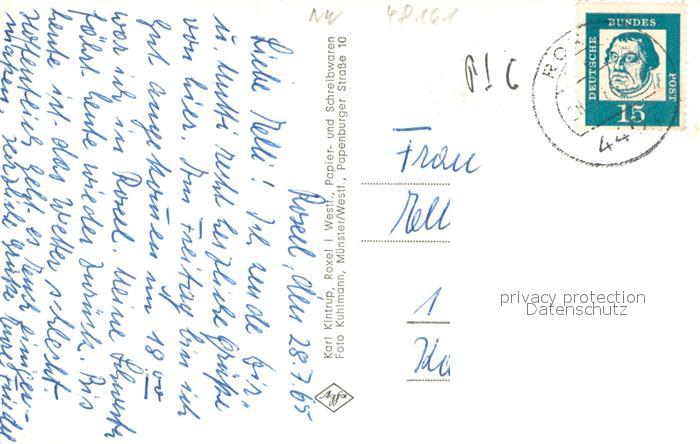 NW 48161
P! C
DEUTSCHE BUNDES POST
15
ROX
44
Roxel, den 28.7.65
Liebe Melli! Ich sende Dir
u. Mutti recht herzliche Grüße
von hier. Am Freitag bin ich
gut angekommen um 18 00
war ich in Roxel. Meine Schwester
fährt heute wieder zurück. Bis
heute ist das Wetter schlecht.
Hoffentlich geht es Euch einiger-
maßen. Herzliche Grüße
Karl Kintrup, Roxel i. Westf., Papier- und Schreibwaren
Foto Kuhlmann, Münster/Westf., Papenburger Straße 10
Agfa
Frau
Mell
1
Ka
privacy protection
Datenschutz